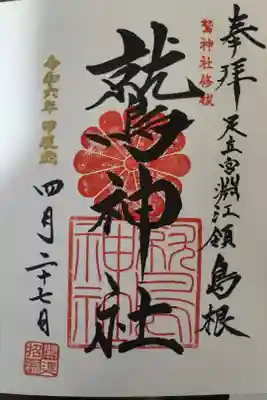 奉拝
足立郡淵江領 島根
鷲神社修祓
鷲神社
令和六年 甲辰歳
四月二十七日